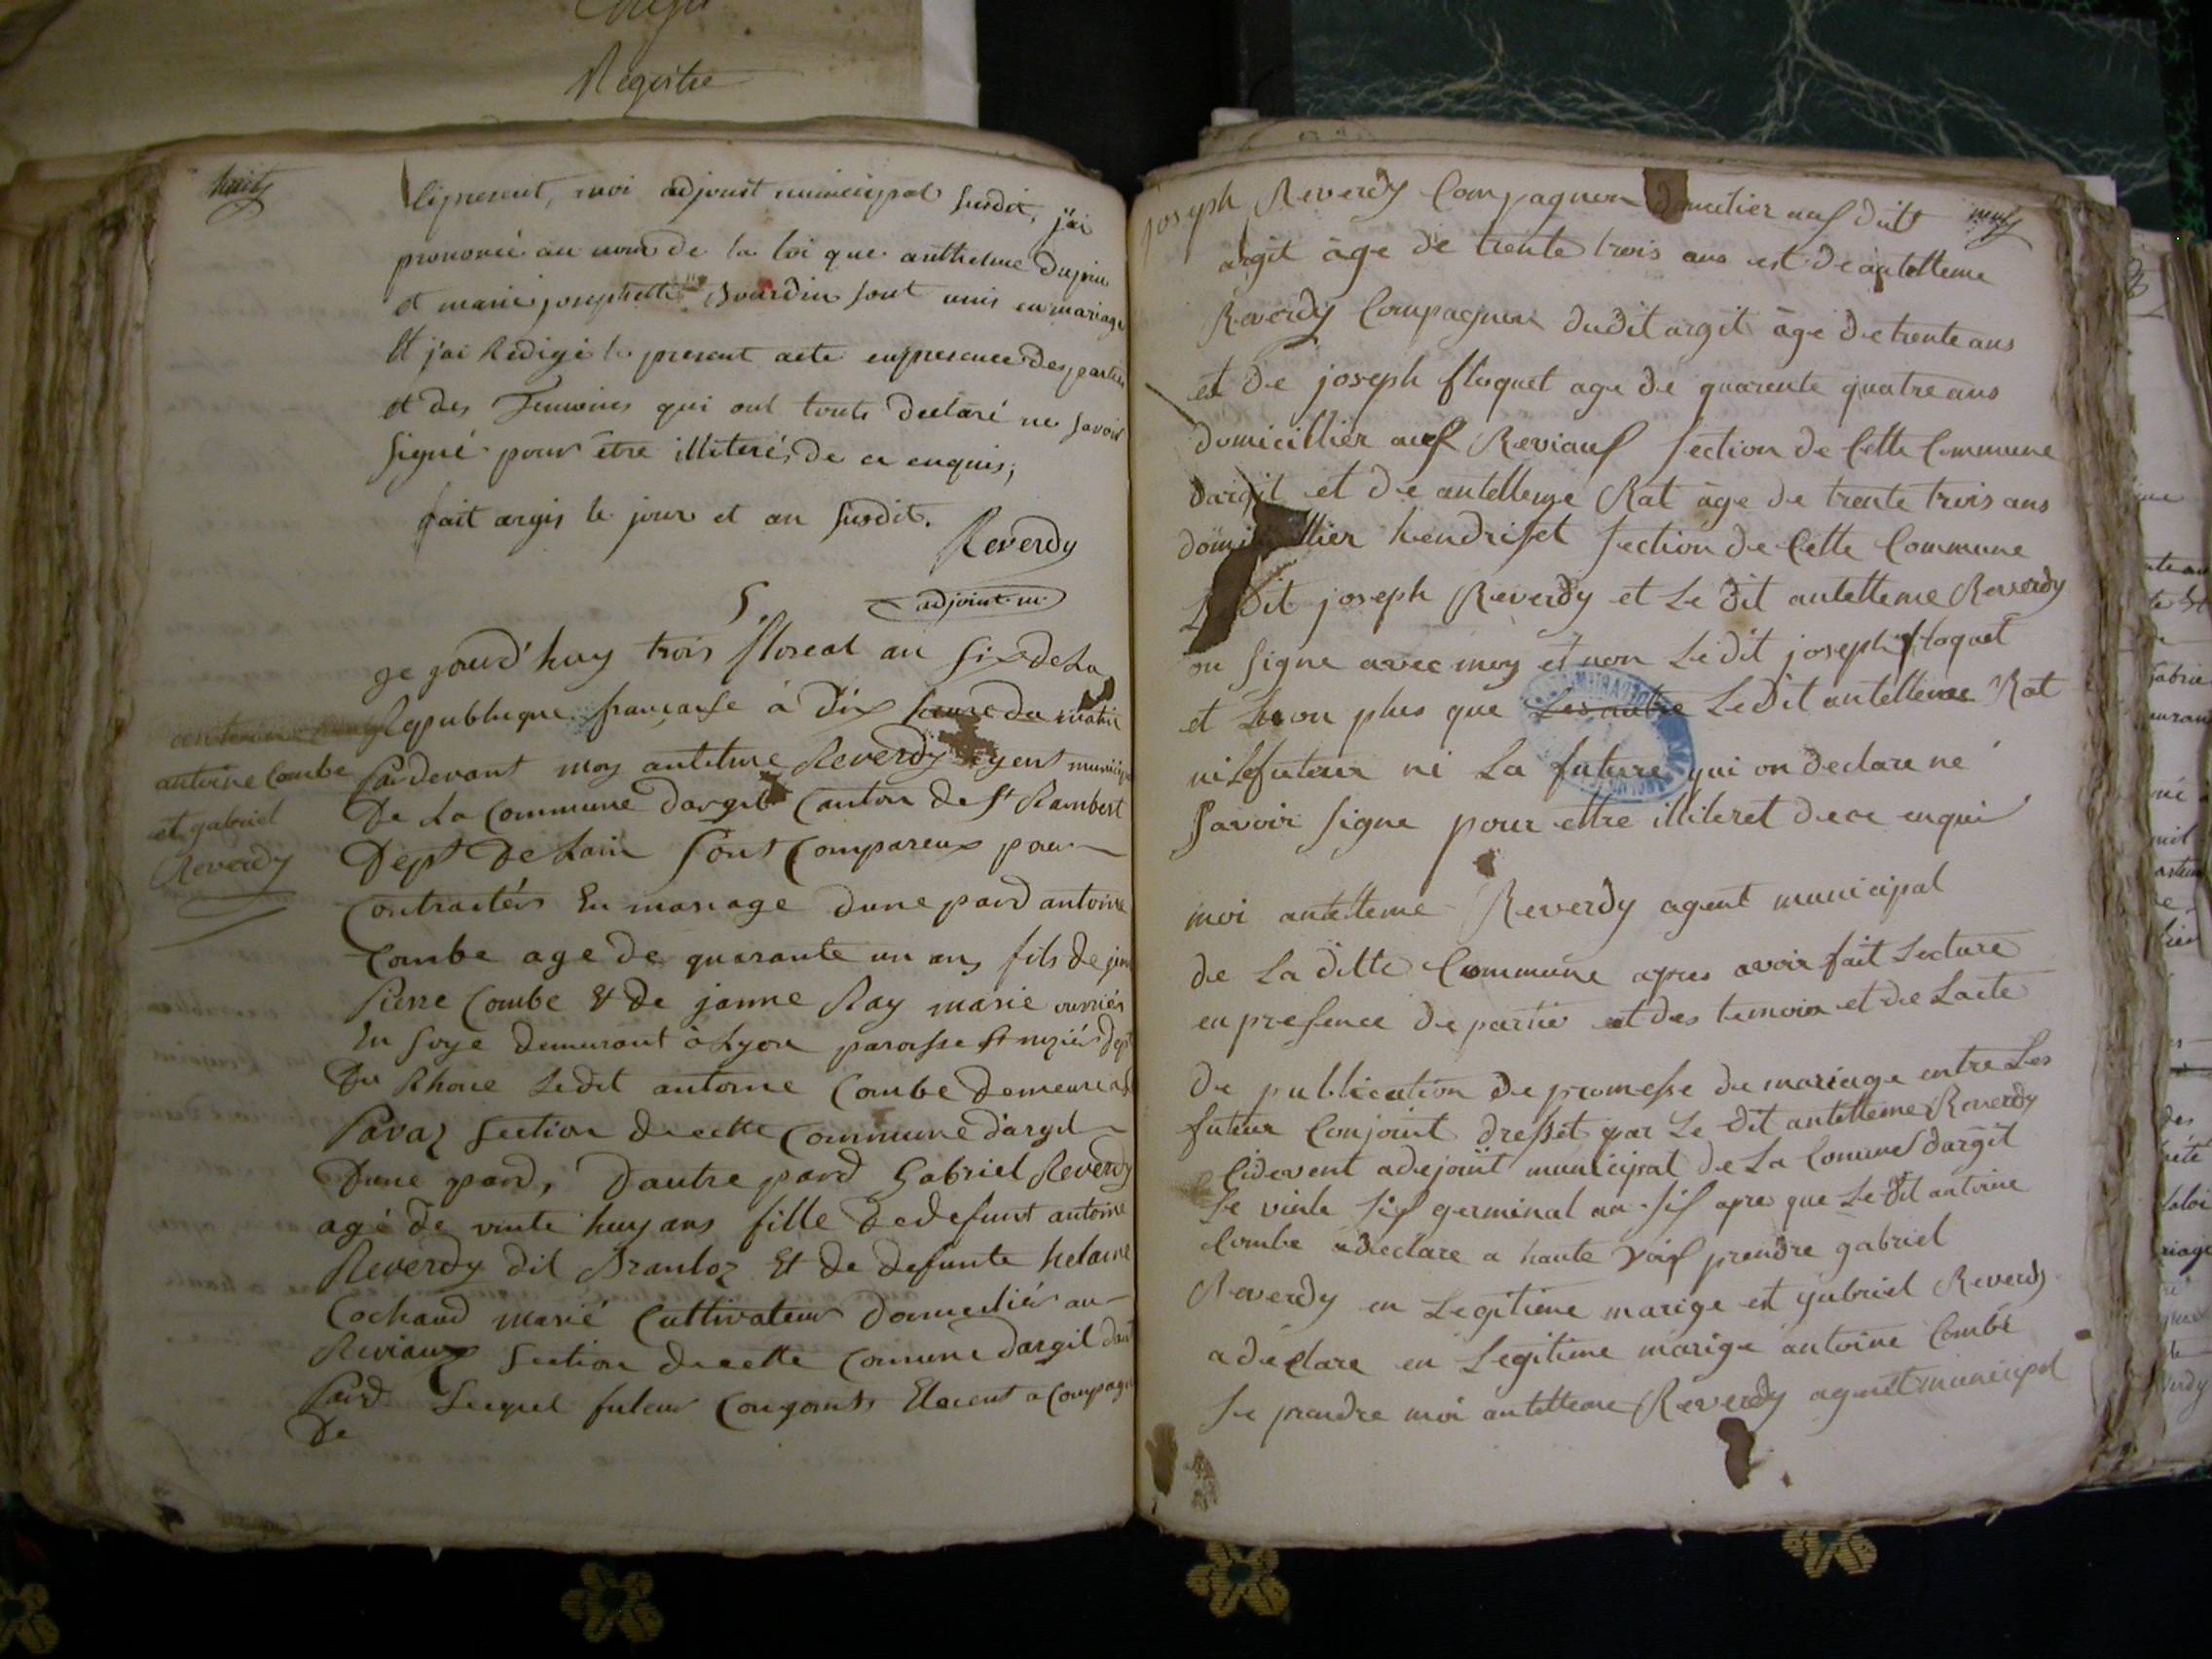 Registre
huit
lipresent, moi adjoust municipal susdit, j'ai
prononcé au nom de la loi que anthelme Dupin
et marie josephette Bourdin sont unis en mariage
Et j'ai Redigé le present acte enpresence des parties
et des Temoins qui ont touts declaré ne savoir
signé pour être illiterés de ce enquis,
fait argis le jour et an susdit.
Reverdy
adjoint m.
5.
je jourd'huy trois floreal an six de La
Republique francaise à dix heure du matin
pardevant moy antelme Reverdy agent municipal
De La Commune dargit Canton de St Rambert
Dept De Lain sont Compareux pour
Contractér En mariage dune pard antoine
Combe age de quarante un ans fils de
Pierre Combe Et de janne Ray marié ouvriér
En soye demurant à Lyon paroisse St niziér dept
Du Rhone Ledit antoine Combe demeure
Pavaz section de cette Commune dargil
Dune pard, Dautre pard Gabriel Reverdy
agé de vinte huy ans fille de defunt antoine
Reverdy dit Branloz Et de defunte helaine
Cochaud marié Cultivateur domicilié au
Reviaux section de cette Comune dargil
Pard Lequel futeur Conjoints Etoient a Compagne
De
antoine Combe
et gabriel
Reverdy
joseph Reverdy Compagnon au dit
neuf
argit âge de trente trois ans et de antelleme
Reverdy Compagnon dudit argit âge de trente ans
et de joseph floquet age de quarente quatre ans
domicillier auf Reviauf section de Cette Commune
dargit et de antelleme Rat âge de trente trois ans
hendriset section de Cette Commune
dit joseph Reverdy et Le dit antelleme Reverdy
on signe avec moy et non Le dit joseph floquet
et non plus que Les autre Le dit antelleme Rat
ni Le futeur ni La future qui on declare né
savoir signe pour ettre illiteret de ce enqui
moi antelleme Reverdy agent municipal
de La ditte Commune apres avoir fait Lecture
en presence de partie et des temoin et de Lacte
De publication de promesse de mariage entre Les
futeur Conjoint dresset par Le dit antelleme Reverdy
Cidevent adejoint municipal de La Comune dargit
Le vinte sif germinal an sif apre que Le dit antoine
Combe a declare a haute voif prendre gabriel
Reverdy en Legitieme marige et gabriel Reverdy
a declare en Legitime marige antoine Combe
Le prendre moi antelleme Reverdy agent municipal